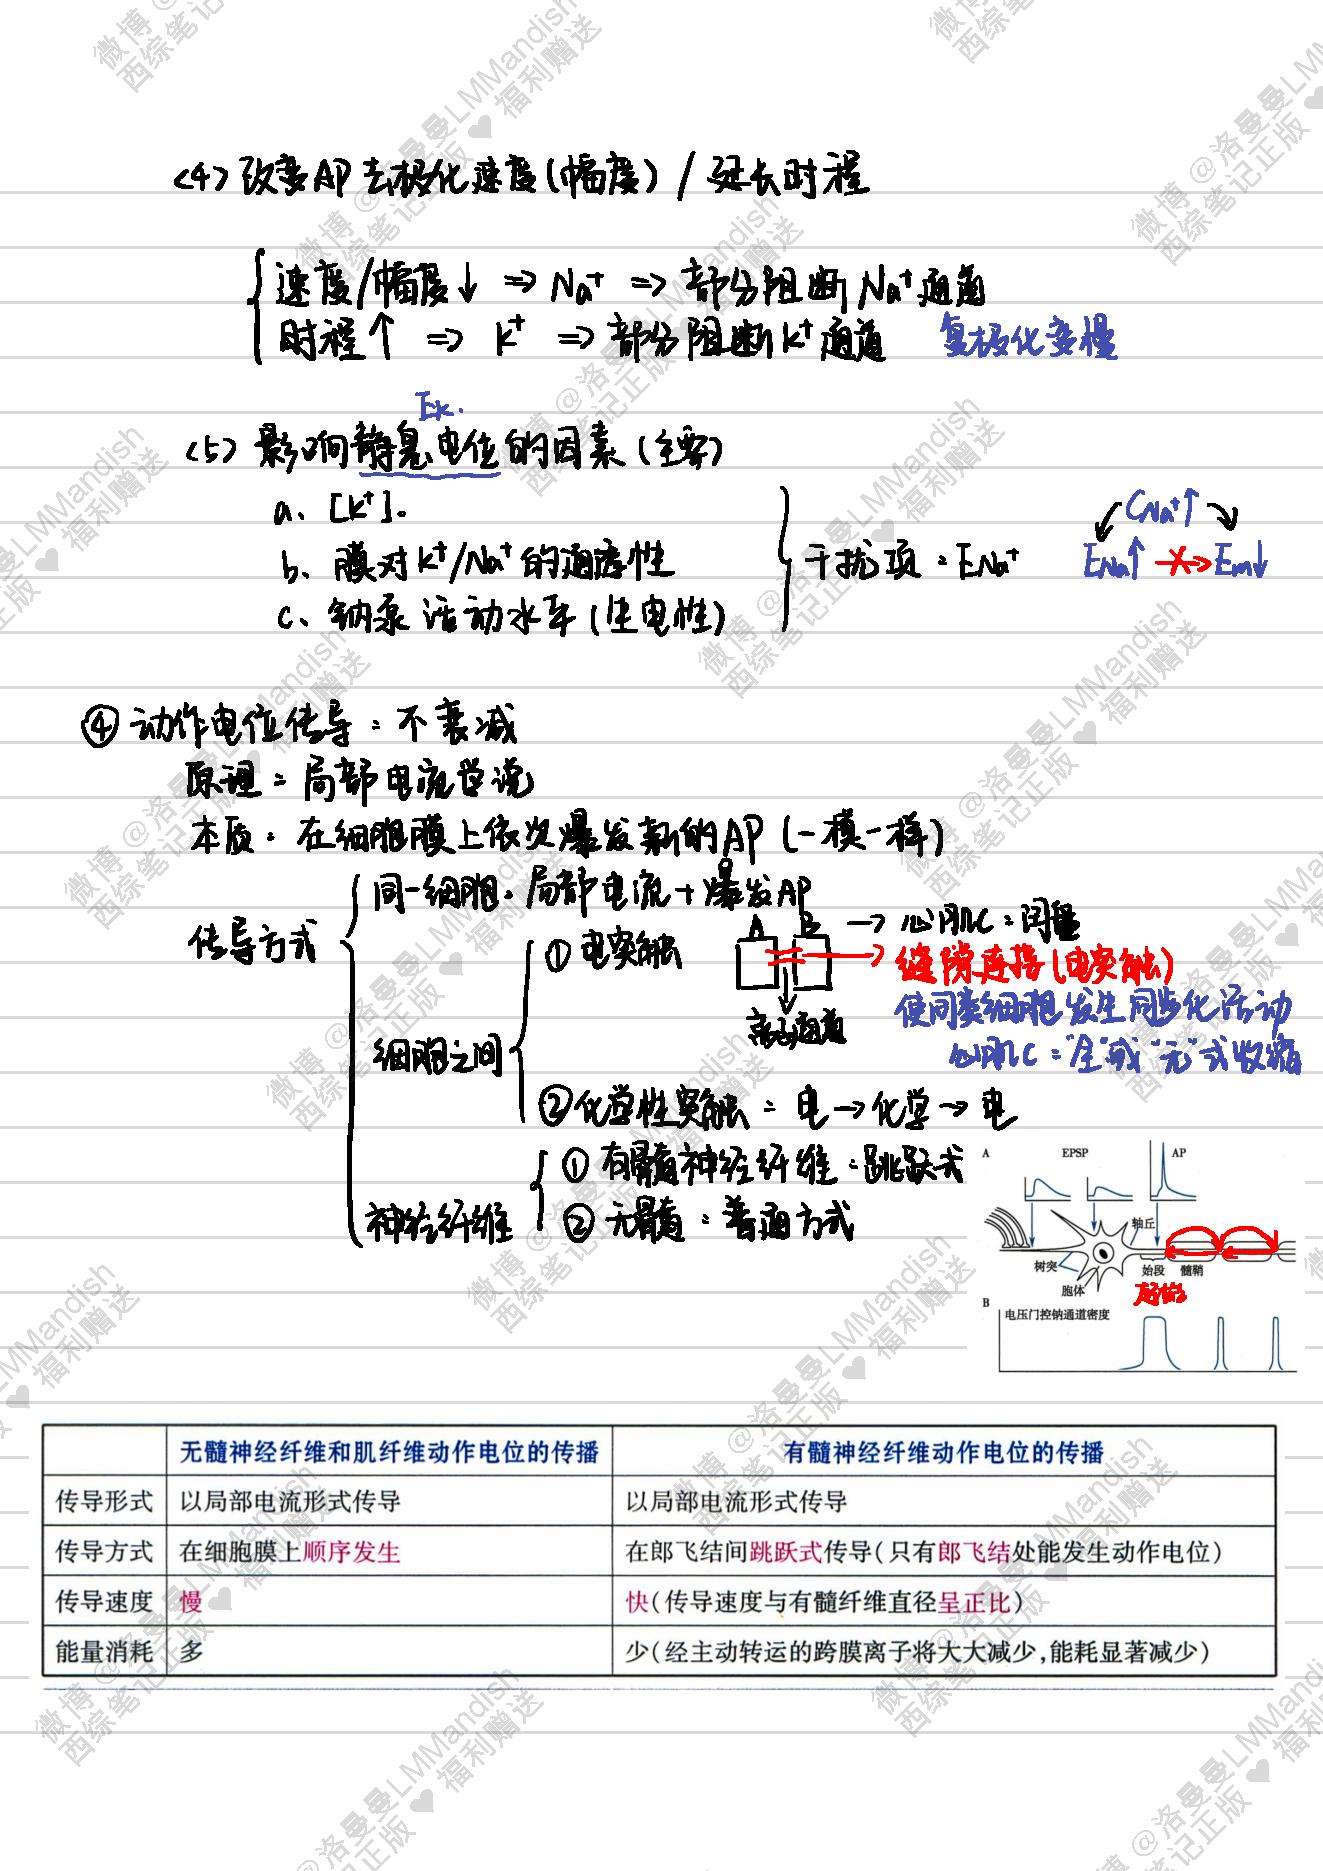 <4> 改变AP去极化速度(幅度) / 延长时程
速度/幅度↓ ⇒ Na⁺ ⇒ 部分阻断Na⁺通道
时程↑ ⇒ K⁺ ⇒ 部分阻断K⁺通道 复极化变慢
Ek.
<5> 影响静息电位的因素(主要)
a、[K⁺].
b、膜对K⁺/Na⁺的通透性
c、钠泵活动水平(生电性)
干扰项:ENa⁺
CNa⁺↑
ENa↑ Em↓
④ 动作电位传导:不衰减
原理:局部电流学说
本质:在细胞膜上依次爆发新的AP(一模一样)
传导方式
同一细胞:局部电流+爆发AP
细胞之间
① 电突触
A B → 心肌C:闰盘
→ 缝隙连接(电突触)
离子通道
使同类细胞发生同步化活动
心肌C:"全"或"无"式收缩
② 化学性突触:电→化学→电
神经纤维
① 有髓神经纤维:跳跃式
② 无髓:普通方式
A EPSP AP
轴丘
树突 始段 髓鞘
胞体
B 电压门控钠通道密度
无髓神经纤维和肌纤维动作电位的传播 有髓神经纤维动作电位的传播
传导形式 以局部电流形式传导 以局部电流形式传导
传导方式 在细胞膜上顺序发生 在郎飞结间跳跃式传导(只有郎飞结处能发生动作电位)
传导速度 慢 快(传导速度与有髓纤维直径呈正比)
能量消耗 多 少(经主动转运的跨膜离子将大大减少,能耗显著减少)
微博@洛曼曼LMMandish
西综笔记正版♥福利赠送